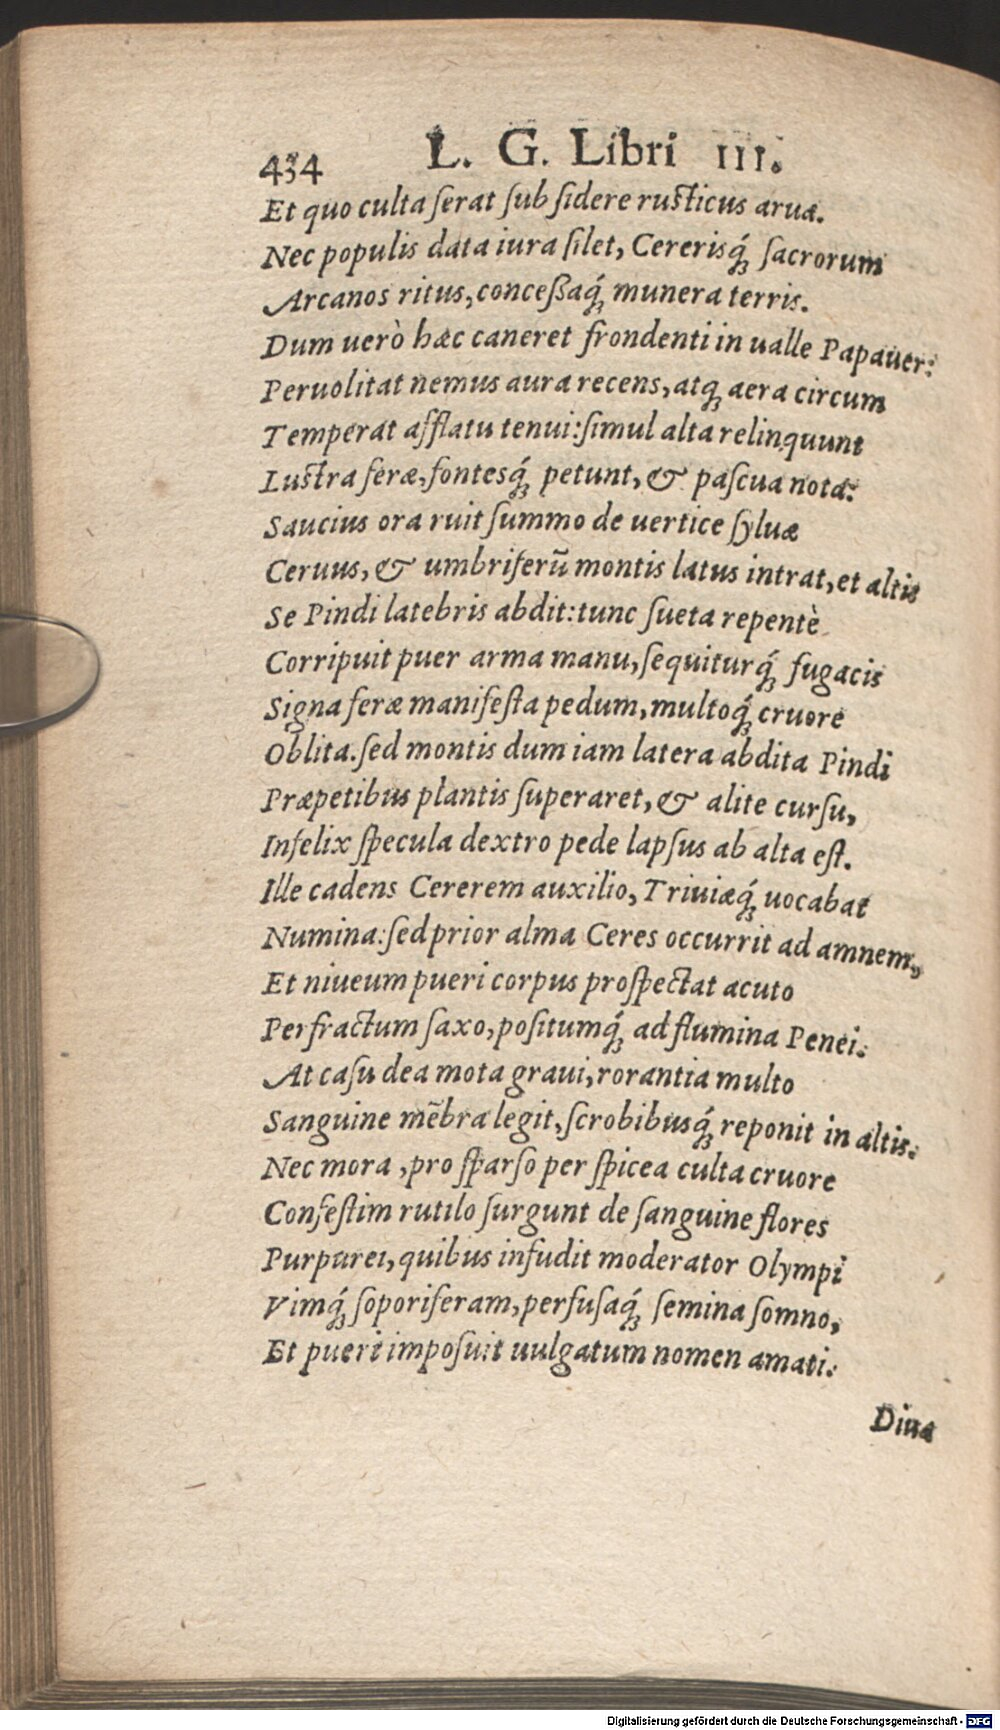 434 L. G. Libri III.
Et quo culta ſerat ſub ſidere ruſticus arua.
Nec populis data iura ſilet, Cererisq́; ſacrorum
Arcanos ritus, conceßaq́; munera terris.
Dum uerò hæc caneret frondenti in ualle Papauer:
Peruolitat nemus aura recens, atq; aera circum
Temperat afflatu tenui: ſimul alta relinquunt
Luſtra feræ, fontesq́; petunt, & paſcua nota:
Saucius ora ruit ſummo de uertice ſyluæ
Ceruus, & umbriferū montis latus intrat, et altis
Se Pindi latebris abdit: tunc ſueta repentè
Corripuit puer arma manu, ſequiturq́; fugacis
Signa feræ manifeſta pedum, multoq́; cruore
Oblita. ſed montis dum iam latera abdita Pindi
Præpetibus plantis ſuperaret, & alite curſu,
Infelix ſpecula dextro pede lapſus ab alta eſt.
Ille cadens Cererem auxilio, Triuiæq́; uocabat
Numina: ſed prior alma Ceres occurrit ad amnem,
Et niueum pueri corpus proſpectat acuto
Perfractum ſaxo, poſitumq́; ad flumina Penei.
At caſu dea mota graui, rorantia multo
Sanguine mēbra legit, ſcrobibusq́; reponit in altis.
Nec mora, pro ſparſo per ſpicea culta cruore
Confeſtim rutilo ſurgunt de ſanguine flores
Purpurei, quibus infudit moderator Olympi
Vimq́; ſoporiferam, perfuſaq́; ſemina ſomno,
Et pueri impoſuit uulgatum nomen amati.
Diua
Digitalisierung gefördert durch die Deutsche Forschungsgemeinschaft - DFG